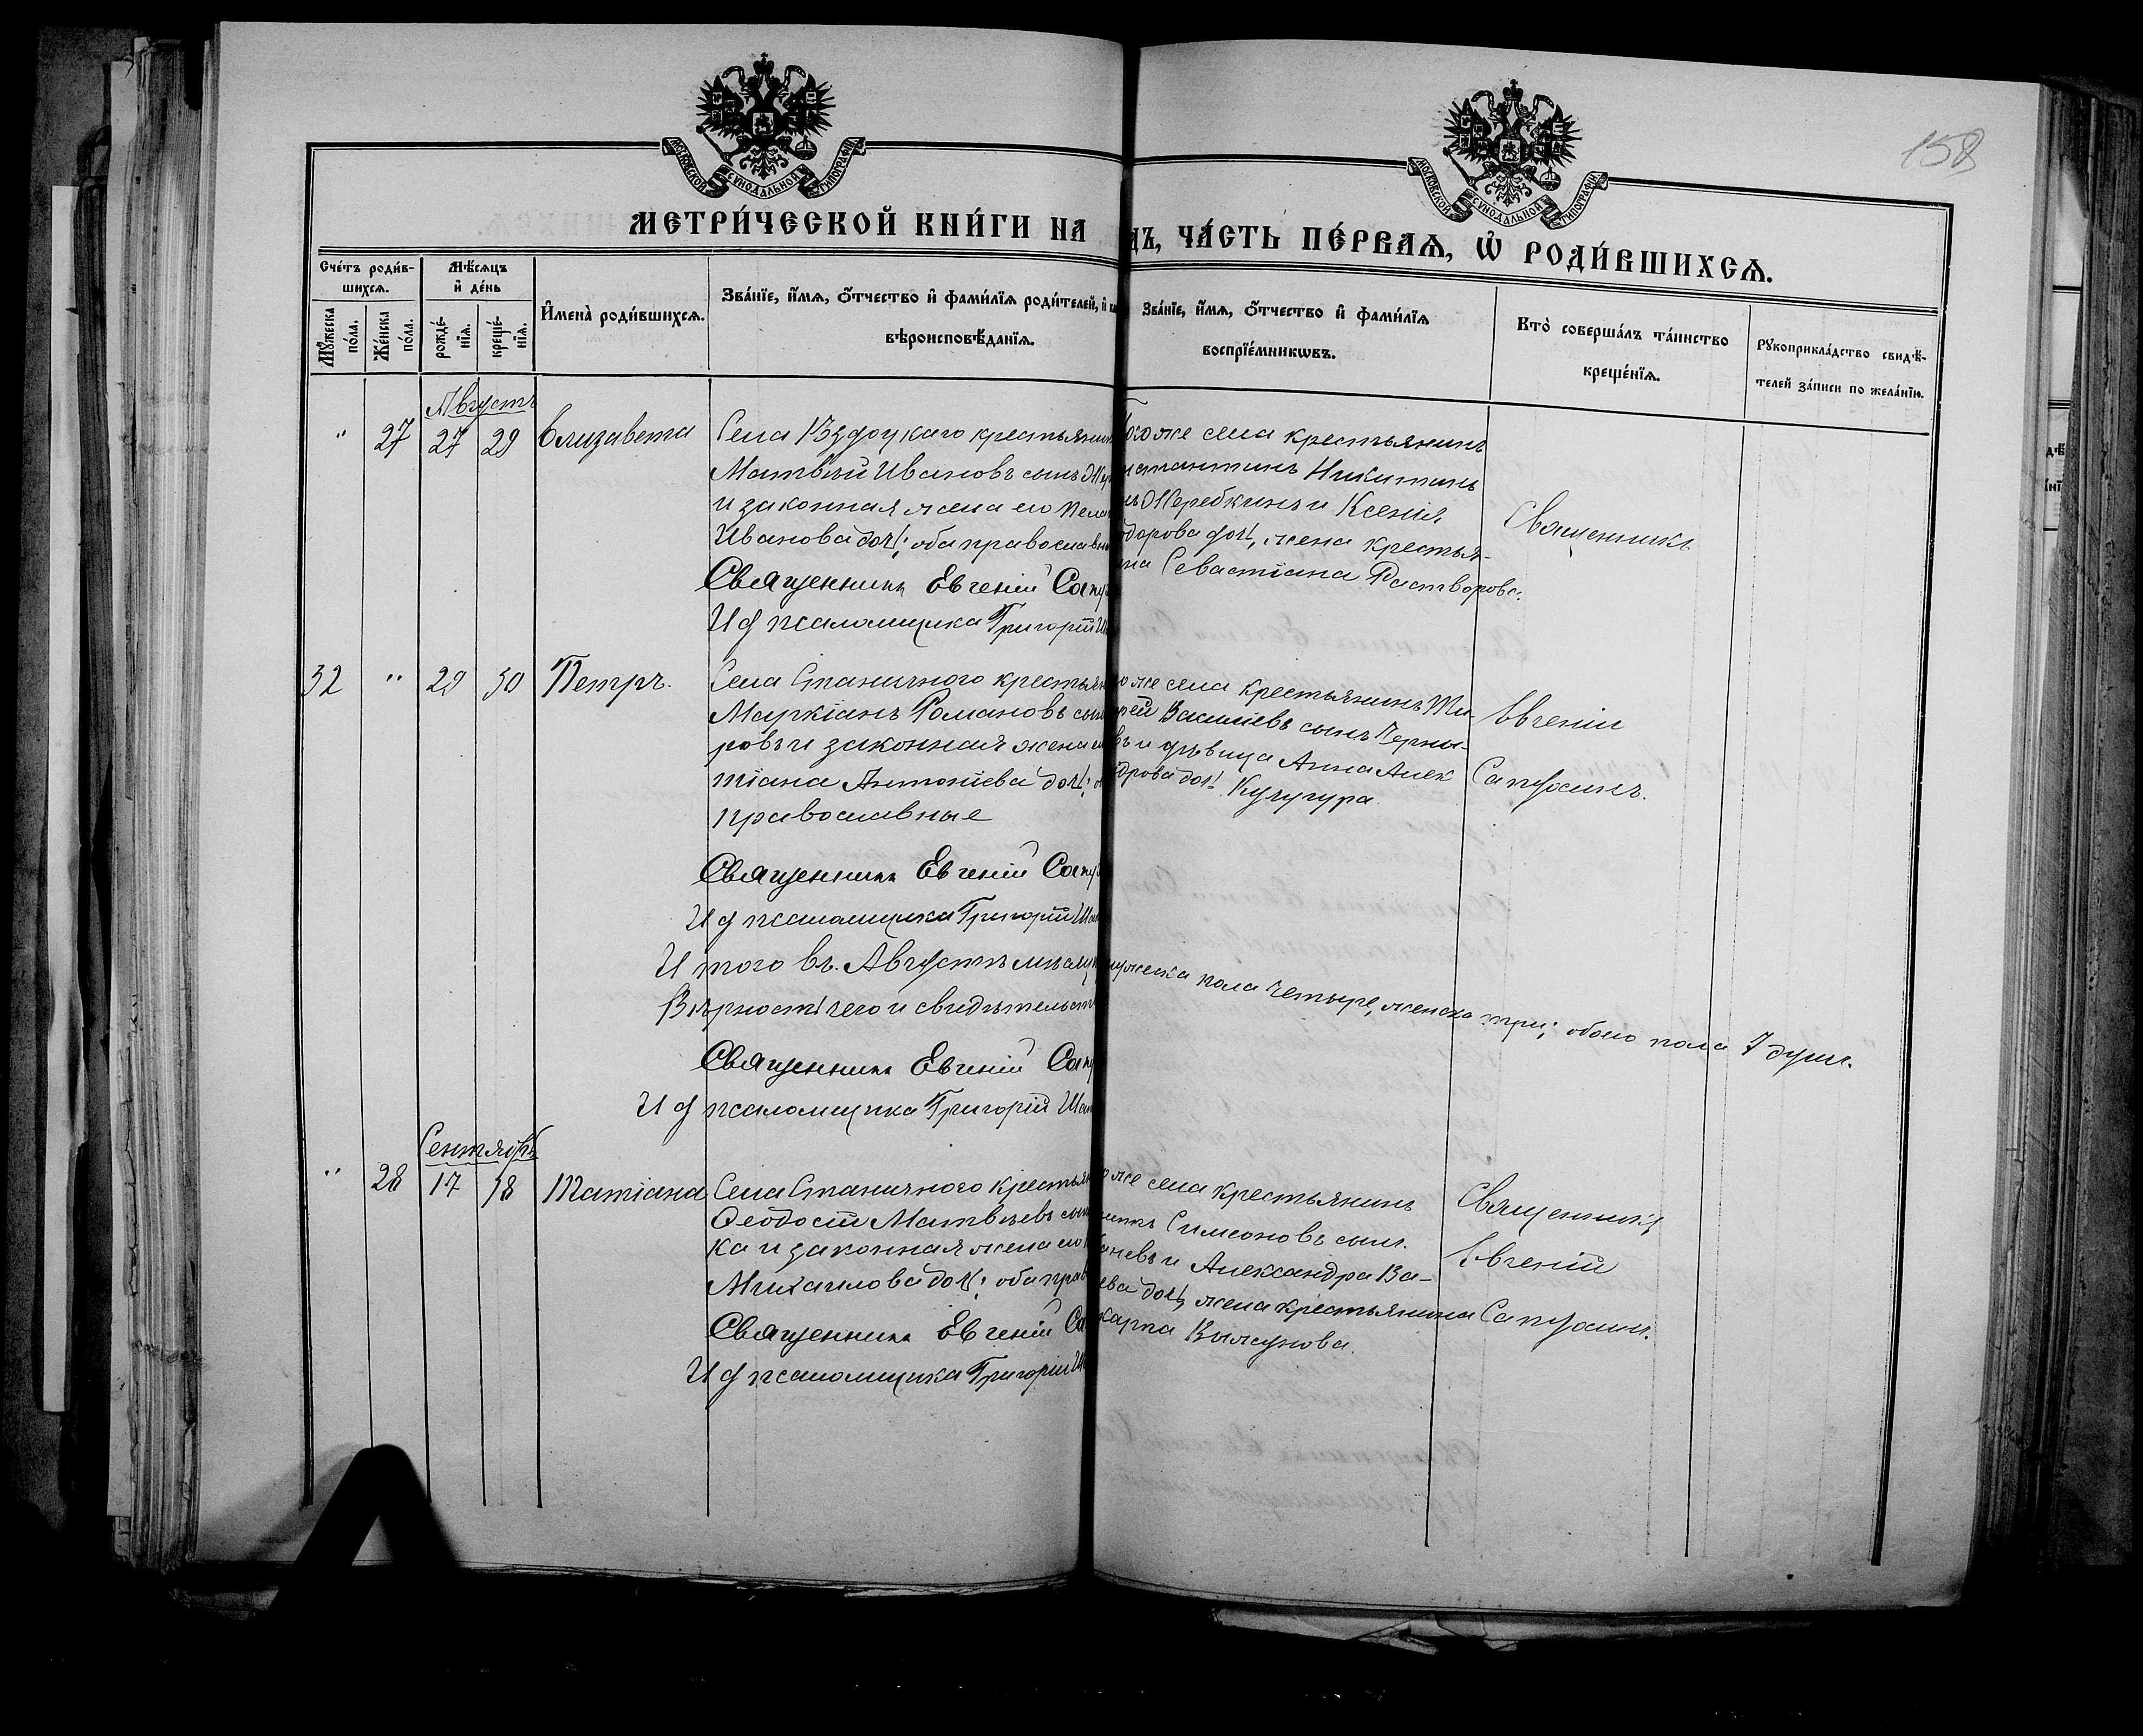 158
МОСКОВСКОЙ СУНОДАЛЬНОЙ ТИПОГРАФІИ
МОСКОВСКОЙ СУНОДАЛЬНОЙ ТИПОГРАФІИ
МЕТРИ́ЧЕСКОЙ КНИ́ГИ НА
ДЪ, ЧА́СТЬ ПЕ́РВАѦ, Ѡ҆ РОДИ́ВШИХСѦ.
Сче́тъ роди́в-
шихсѧ.
Мꙋ́жеска
по́ла.
Же́нска
по́ла.
Мѣ́сѧцъ
и҆ де́нь
рожде́-
нїѧ.
креще́-
нїѧ.
И҆мена̀ роди́вшихсѧ.
Зва́нїе, и҆́мѧ, ѻ҆́тчество и҆ фами́лїѧ роди́телей, и҆
вѣроисповѣ́данїѧ.
Зва́нїе, и҆́мѧ, ѻ҆́тчество и҆ фами́лїѧ
воспрїе́мникѡвъ.
Кто̀ соверша́лъ та́инство
креще́нїѧ.
Рꙋкоприкла́дство свидѣ́-
телей за́писи по жела́нїю.
Августъ
" 27 27 29 Елизавета
Села крестьянин
Матвѣй Ивановъ сынъ
и законная жена его Пела
Иванова дочь; оба православн
Священникъ Евгеній Сап
И д псаломщика Григорій
гоже села крестьянинъ
нстантинъ Никитинъ
нъ Жеребкинъ и Ксенія
одорова дочь, жена крестья-
нина Севастіана Растворова.
Священникъ
32 " 29 30 Петръ.
Села Станичного крестьян
Маркіанъ Романовъ сын
ровъ и законная жена ег
тіана Антоніева дочь; о
православные
Священникъ Евгеній Сап
И д псаломщика Григорій Ша
о же села крестьянинъ Ти-
ѳей Василіевъ сынъ Черны-
въ и дѣвица Анна Алек
дрова дочь Кулугура.
Евгеній
Сапфсинъ.
И того въ Августѣ мѣсяц мужеска пола четыре, женска три; обоего пола 7 душъ.
Вѣрность чего и свидѣтельст
Священникъ Евгеній Сап
И д псаломщика Григорій Ша
Сентябрь
" 28 17 18 Татіана
Села Станичного крестьян
Ѳеодосій Матвѣевъ сын
ка и законная жена его
Михаилова дочь; оба прав
Священникъ Евгеній Са
И д псаломщика Григорій Ш
о же села крестьянинъ
Симеоновъ сынъ.
аневъ и Александра Ва-
ева дочь, жена крестьянина
карпа
Священникъ
Евгеній